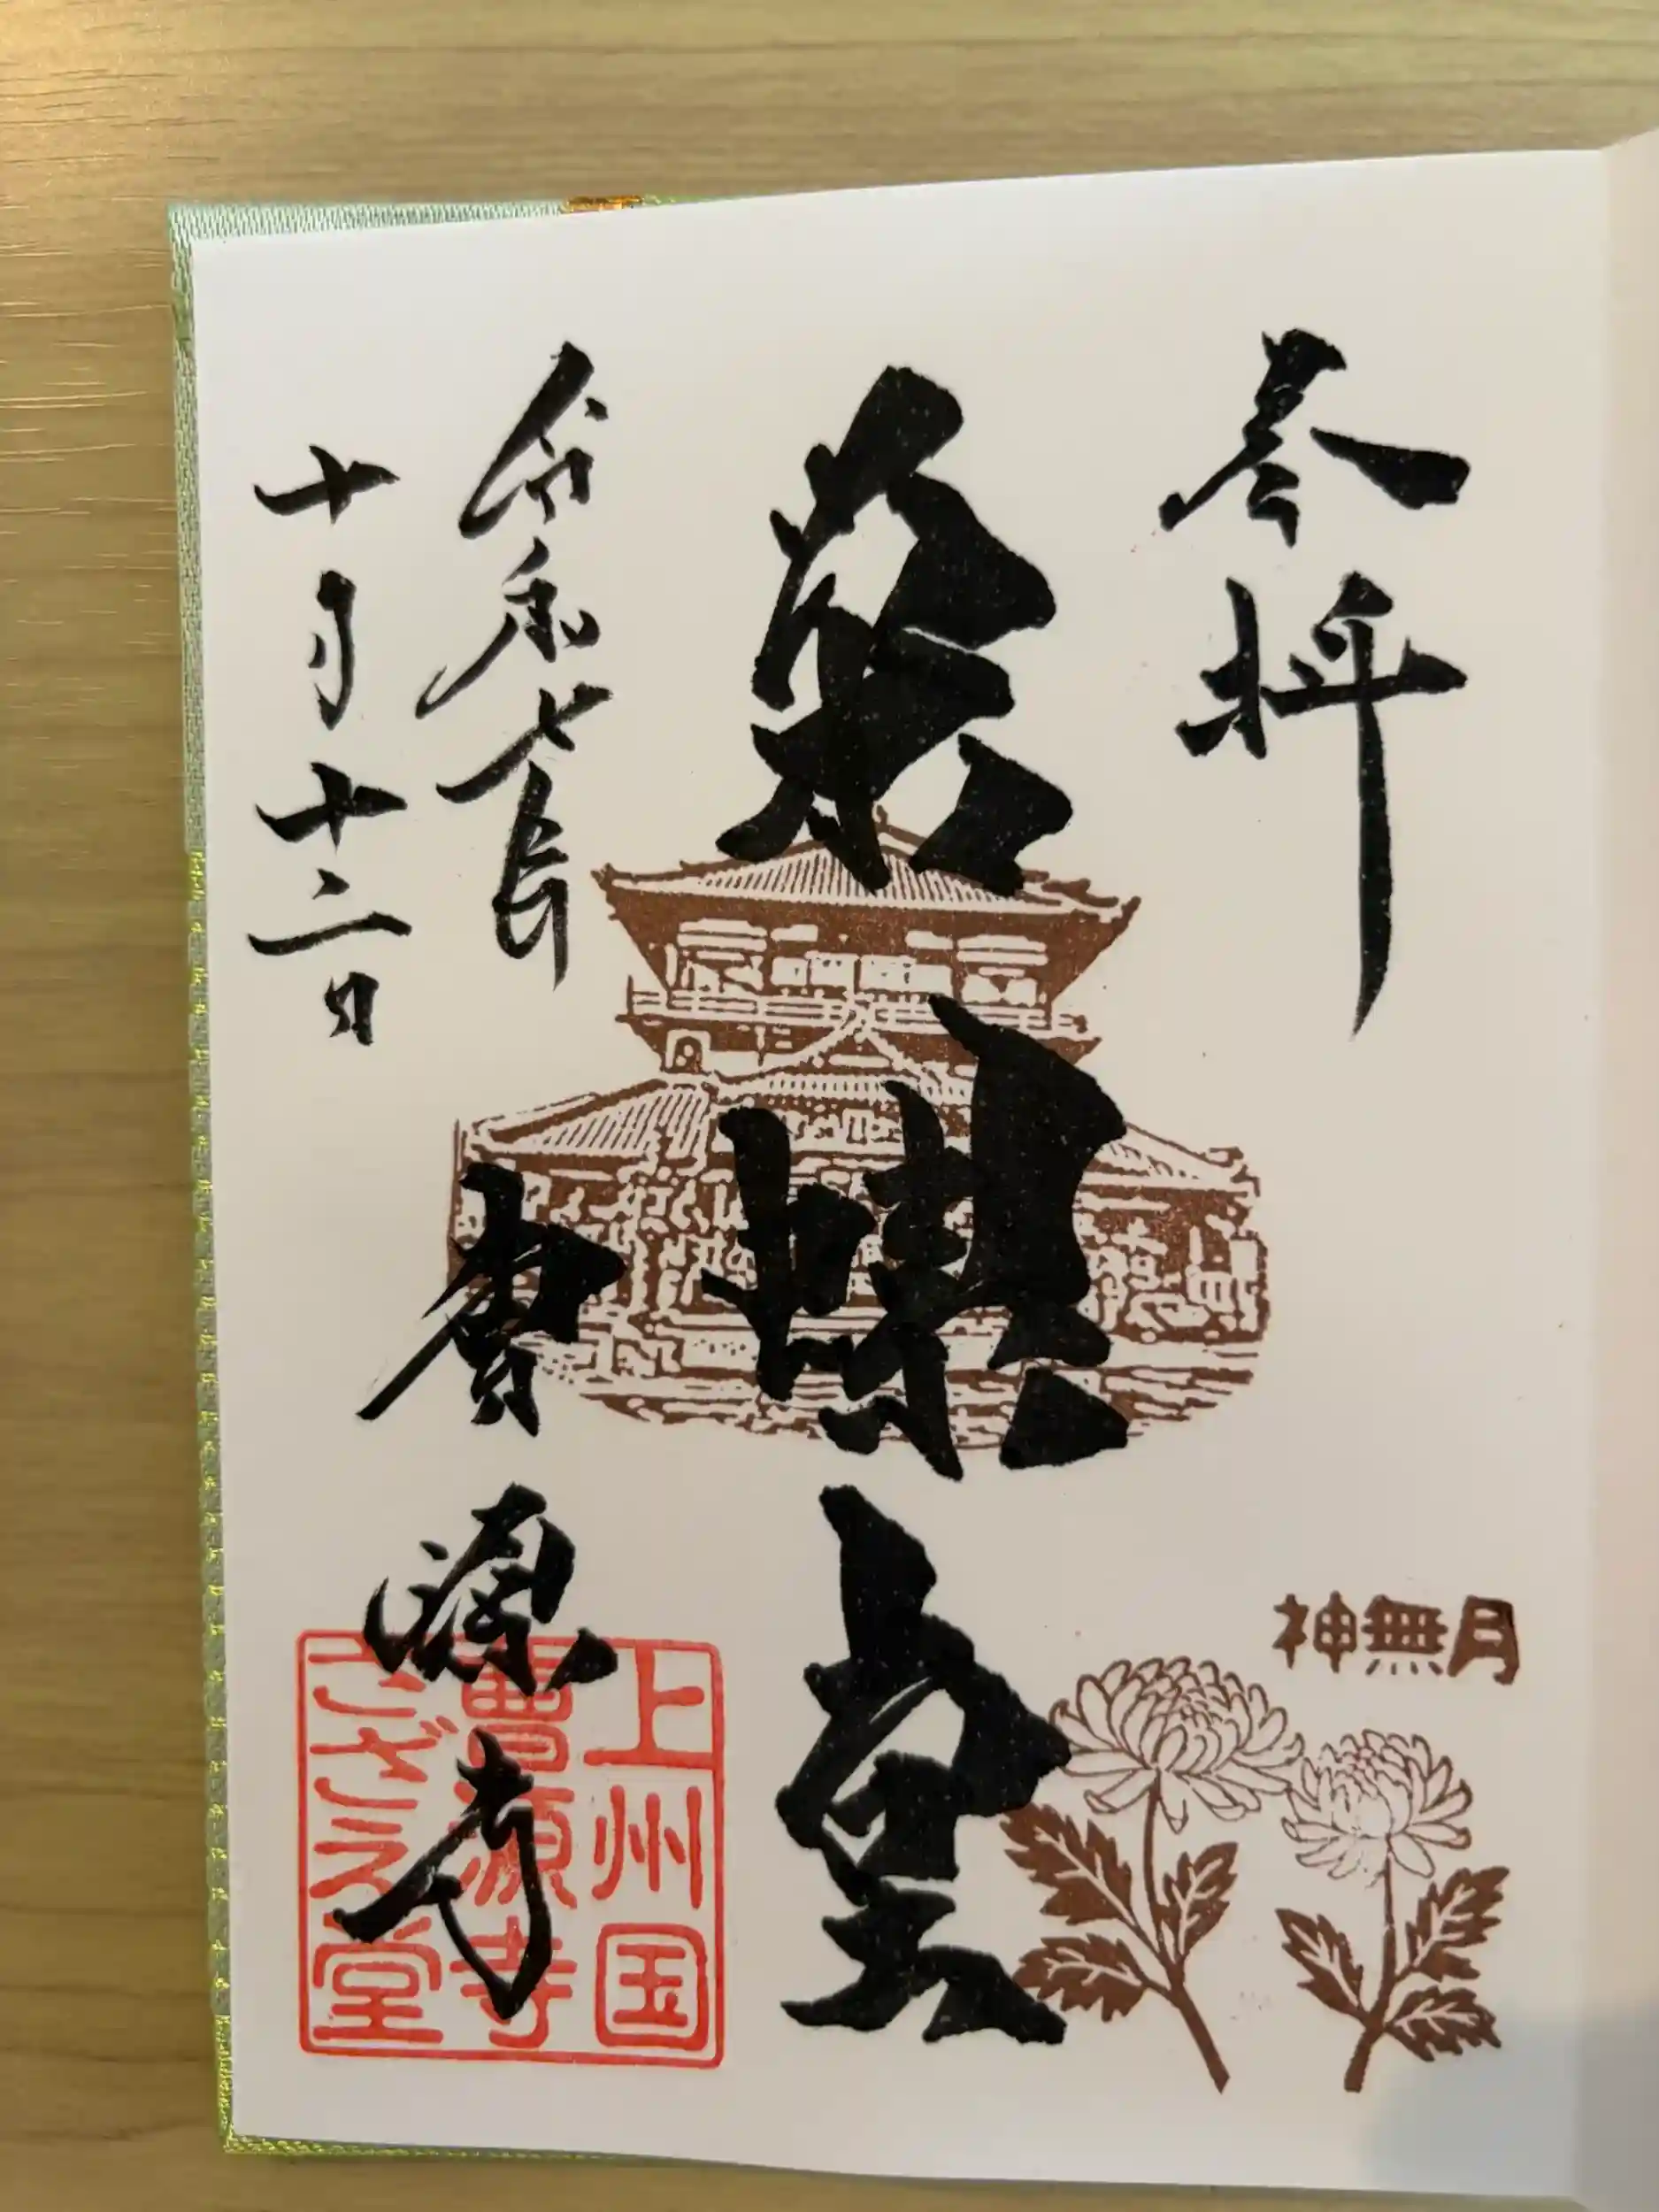 参拝
神無月
栄螺堂
令和七年
十月十二日
曹源寺
上州国
曹源寺
さざえ堂